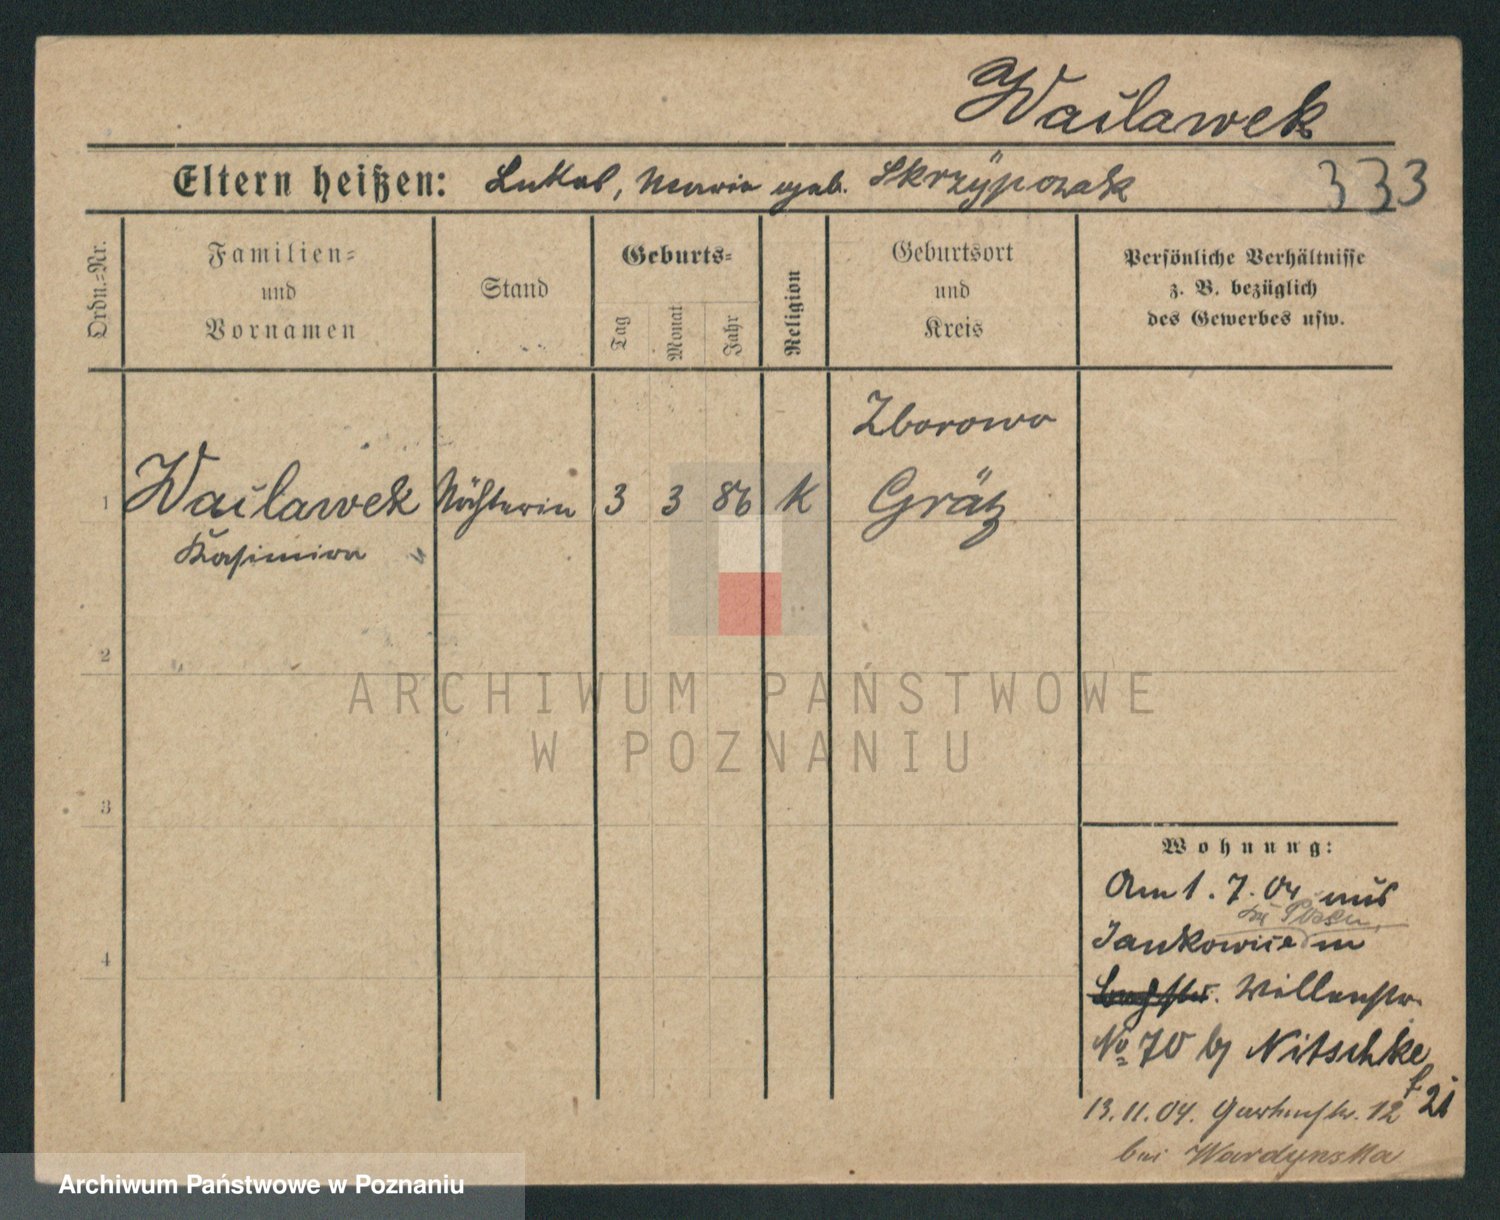 Wacławek
Eltern heißen: Lukas, Maria geb. Skrzÿpczak 333
Ordn.-Nr.
Familien-
und
Vornamen
Stand
Geburts-
Tag
Monat
Jahr
Religion
Geburtsort
und
Kreis
Persönliche Verhältnisse
z. B. bezüglich
des Gewerbes usw.
Zborowo
1 Wacławek 3 3 86 K Grätz
Kasimira
2
3
4
ARCHIWUM PAŃSTWOWE
W POZNANIU
Wohnung:
Am 1. 7. 04 aus
Posen
Jankowice in
Nº 70 bei Nitschke
13. 11. 04. Gartenstr. 12
bei Wardynska
Archiwum Państwowe w Poznaniu